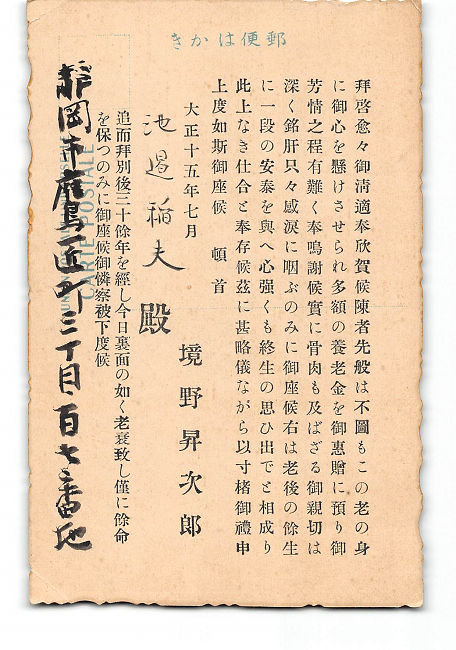 郵便はかき
拜啓愈々御淸適奉欣賀候陳者先般は不圖もこの老の身
に御心を懸けさせられ多額の養老金を御惠贈に預り御
芳情之程有難く奉鳴謝候實に骨肉も及ばざる御親切は
深く銘肝只々感淚に咽ぶのみに御座候右は老後の餘生
に一段の安泰を與へ心强くも終生の思ひ出でと相成り
此上なき仕合と奉存候玆に甚略儀ながら以寸楮御禮申
上度如斯御座候　頓首
大正十五年七月
境野昇次郎
池邉稲夫殿
追而拜別後三十餘年を經し今日裏面の如く老衰致し僅に餘命
を保つのみに御座候御憐察被下度候
靜岡市鷹匠町三丁目百七番地
CARTE POSTALE